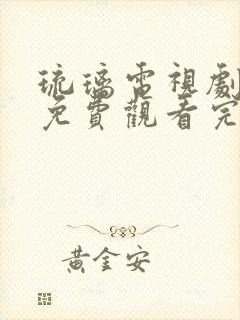 琉璃電視劇
免費觀看完
黃金安